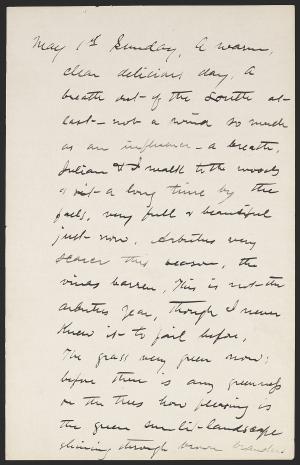 May 1st Sunday, A warm,
clear delicious day, A
breath out of the South at
last - not a wind so much
as an influence - a breath,
Julian & I walk to the woods
& sit a long time by the
falls, very full & beautiful
just now. Arbutus very
scarce this season, the
vines barren, This is not the
arbutus year, though I never
knew it to fail before,
The grass very green now;
before there is any greenness
on the trees how pleasing is
the green sun-lit-landscape
shining through brown branches